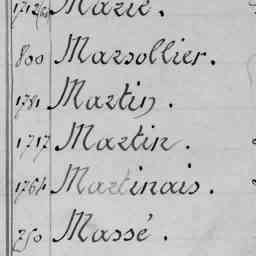 Marie.
800 Marsollier.
1781 Martin.
1717 Martin.
1764 Martinais.
750 Massé.